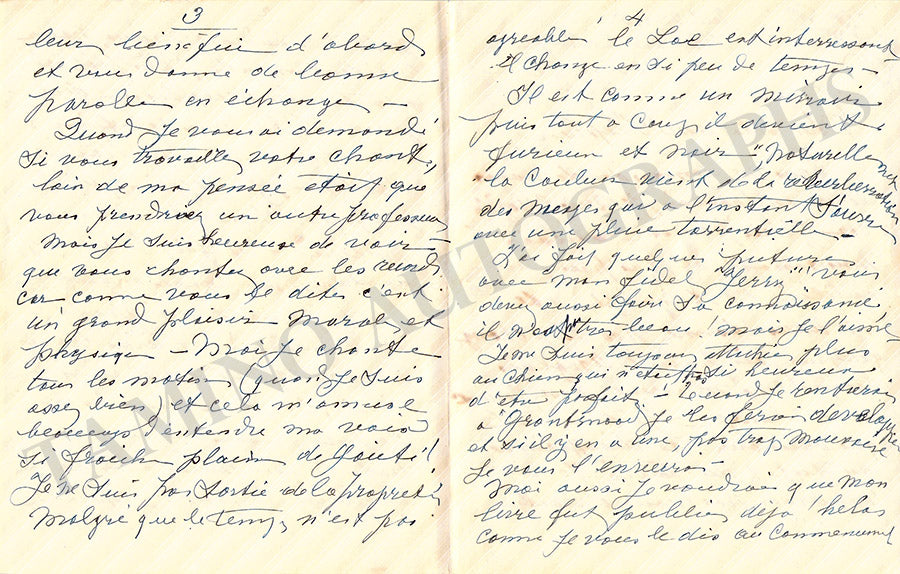 3
leur bien être d'abord
et vous donne de bonne
parolle en échange —
Quand je vous ai demandé
si vous travaillez votre chant,
loin de ma pensée était que
vous prendriez un autre professeur
Mais je suis heureuse de voir —
que vous chantez avec les
car comme vous le dites c'est
un grand plaisir moral et
physique — Moi je chante
tous les matins (quand je suis
assez bien) et cela m'amuse
beaucoup d'entendre ma voix
si fraiche plaine de Gaité!
Je ne suis pas sortie de la propriété
Malgré que le temps n'est pas
4
agréable! le Lac est interressant
il change en si peu de temps —
Il est comme un mirroir
puis tout a coup il devient
furieux et noir "naturellement
la couleur vient de la
des nuages qui a l'instant s'ouvre
avec une pluie torrentielle —
J'ai fait quelques pictures
avec mon fidel "Jerry"! vous
devez aussi faire sa connaissance
il n'est pas très beau! mais je l'aime
Je me suis toujours attachée plus
au chien qui n'était pas si heureux
d'être parfait — Quand je rentrerai
a je les ferai developper
et s'il y en a une, pas trop mauvaise
je vous l'enverrai —
Moi aussi je voudrais que mon
livre fut publier déja! helas
comme je vous le dis au commencement
TAMINO AUTOGRAPHS